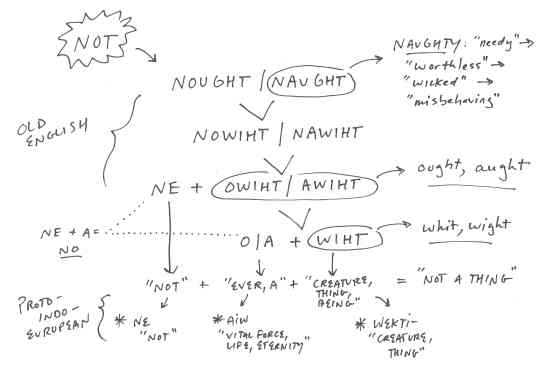 NOT
NOUGHT / NAUGHT
NAUGHTY: "needy" →
"worthless" →
"wicked" →
"misbehaving"
OLD
ENGLISH
NOWIHT / NAWIHT
NE + OWIHT / AWIHT
ought, aught
NE + A =
NO
O/A + WIHT
whit, wight
"NOT" + "EVER, A" + "CREATURE,
THING,
BEING" = "NOT A THING"
PROTO-
INDO-
EUROPEAN
* NE
"NOT"
* AIW
"VITAL FORCE,
LIFE, ETERNITY"
* WEKTI-
"CREATURE,
THING"